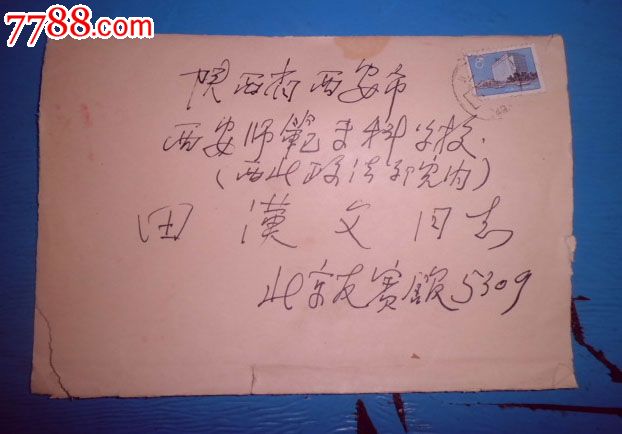 7788.com
陕西省西安市
西安师範专科学校.
(西北政法学院内)
田 漢 文 同志
北京友賓館5309